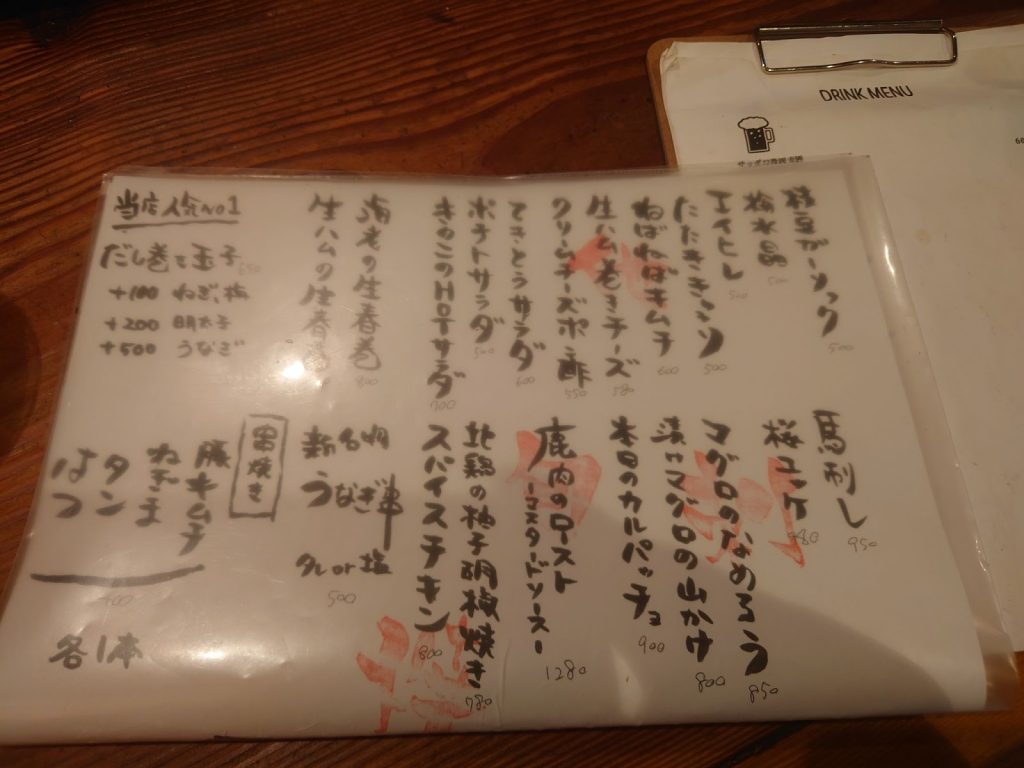 DRINK MENU
枝豆ガーリック
500
梅水晶
500
エイヒレ
500
たたききゅうり
500
ねばねばキムチ
600
生ハム巻きチーズ
580
クリームチーズポン酢
550
てきとうサラダ
600
ポテトサラダ
500
きのこのHOTサラダ
700
海老の生春巻
800
生ハムの生春巻
当店人気No1
だし巻き玉子
650
+100 ねぎ、梅
+200 明太子
+500 うなぎ
馬刺し
950
桜ユッケ
980
マグロのなめろう
850
漬けマグロの山かけ
800
本日のカルパッチョ
900
鹿肉のロースト
〜マスタードソース〜
1280
地鶏の柚子胡椒焼き
780
スパイスチキン
800
新名物
うなぎ串
タレor塩
500
串焼き
豚キムチ
ねぎま
タン
はつ
400
各1本